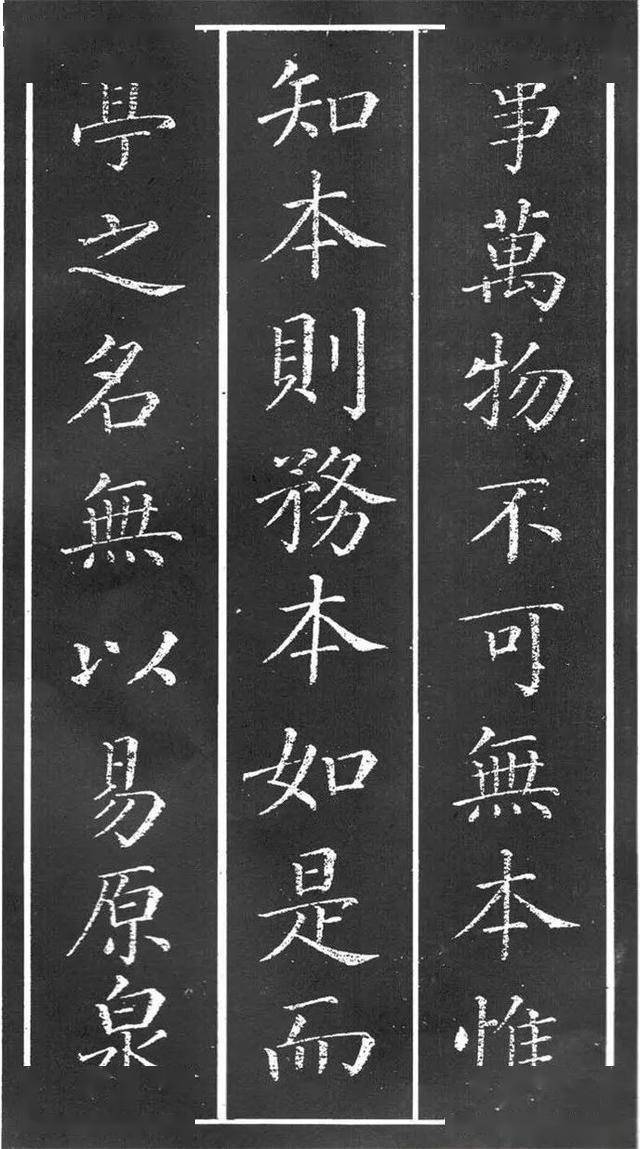 事萬物不可無本惟
知本則務本如是而
亭之名無以易原泉